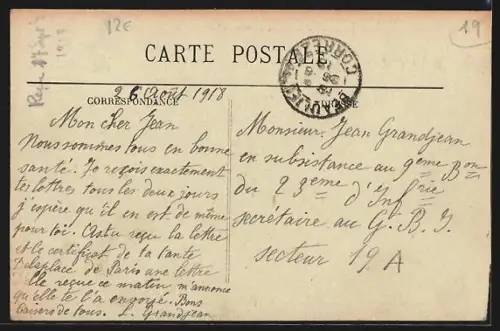 12€
19
Reçu
CARTE POSTALE
BEAULIEU
CORRÈZE
26 Août 1918
CORRESPONDANCE
Mon cher Jean
Nous sommes tous en bonne
santé. Je reçois exactement
tes lettres tous les deux jours
j'espère qu'il en est de même
pour toi. As tu reçu la lettre
et le certificat de ta tante
Delaplace de Paris une lettre
elle reçue ce matin m'annonce
qu'elle te l'a envoyé. Bons
baisers de tous. L. Grandjean
Monsieur Jean Grandjean
en subsistance au 9eme Bon
du 23eme d'Inf rie
secrétaire au G. B. I.
secteur 19 A